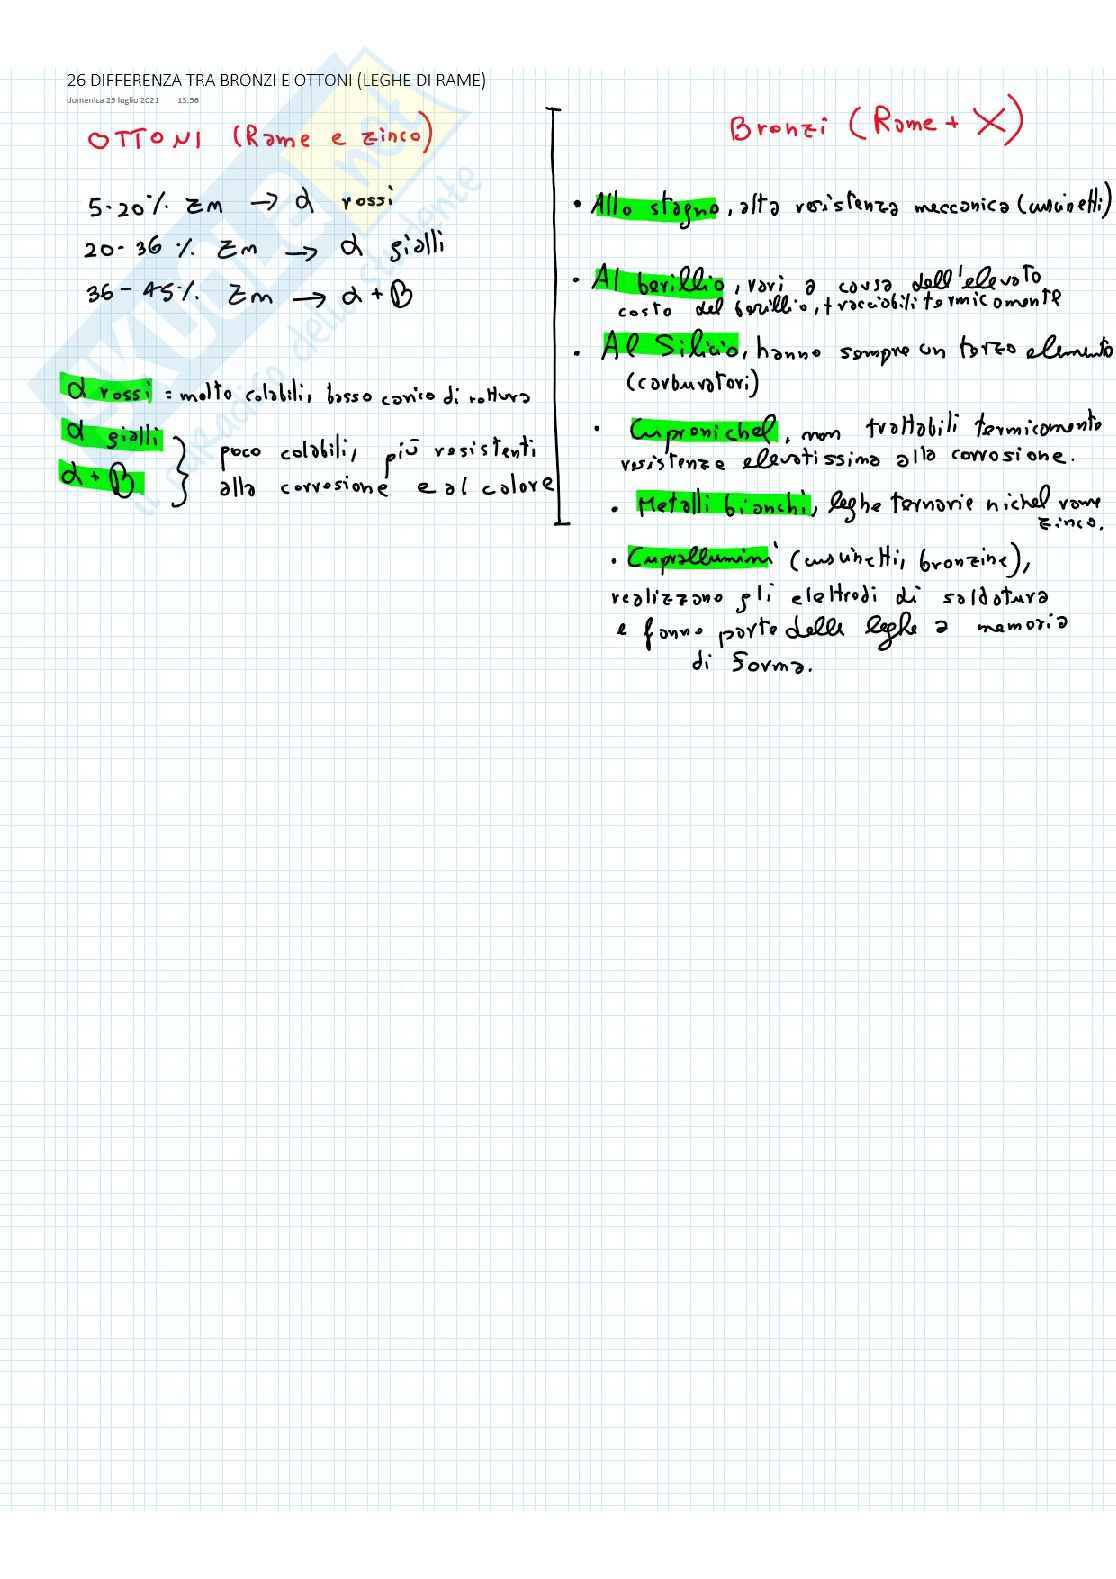 26 DIFFERENZA TRA BRONZI E OTTONI (LEGHE DI RAME)
domenica 25 luglio 2021 15:56
OTTONI (Rame e zinco)
5-20% Zn → α rossi
20-36% Zn → α gialli
36-45% Zn → α + β
α rossi = molto colabili, basso carico di rottura
α gialli
α + β
poco colabili, più resistenti
alla corrosione e al calore
Bronzi (Rame + X)
• Allo stagno, alta resistenza meccanica (cuscinetti)
• Al berillio, rari a causa dell'elevato
costo del berillio, tracciabili termicamente
• Al Silicio, hanno sempre un terzo elemento
(carburatori)
• Cupronichel, non trattabili termicamente
resistenza elevatissima alla corrosione.
• Metalli bianchi, leghe ternarie nichel rame
zinco.
• Cuprallumini (cuscinetti, bronzine),
realizzano gli elettrodi di saldatura
e fanno parte delle leghe a memoria
di forma.
SKUOLA.net
il paradiso dello studente